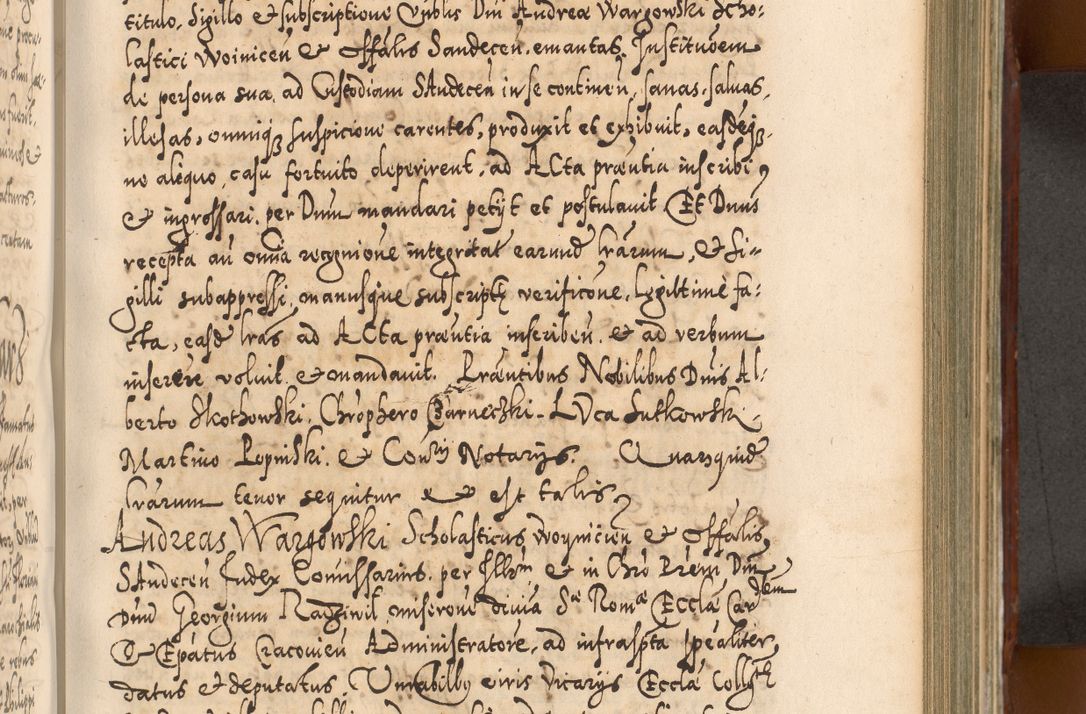 titulo, Sigillo et subscriptione Vnblis Dni Andreæ Wargowski Scho:
lastici Woinicen̄ et Offalis Sandecen̄. emantas. Instituōem
de persona sua, ad Custodiam SAndecen̄ in se continen̄, sanas, saluas,
illesas, omniq₃ suspicione carentes, produxit et exhibuit, easdeq₃
ne aliquo, casu fortuito deperirent, ad ACta præntia inscribi
et ingrossari. per Dnum mandari petijt et postulauit Et Dnus
recepta an̄ omīa recognione integritat earund lrārum, et Si=
gilli subappressi, manusque subscript verificōne, Legittimè fa:
cta, easd lrās ad ACta præntia inscriben̄. et ad verbum
inserere voluit et mandauit. Præntibus Nobilibus Dnis Al:
berto Skothowski, Chrophero Czarneczki. LVca Sutkowski
Martino Lopinski. et Conrij Notarijs. Quarumquid
lrārum tenor sequitur et est talis
Andreas Wargowski Scholasticus Woynicien̄ et Offalis
SAndecen̄ Judex Comissarius. per Illrm et in Chro Prem Dnm
Dnm Georgium Radziwil, miserone diuia Sæ Romæ Ecclæ Cardlem
et Epātus Cracouien̄ Administratore, ad infrasspta speāliter
datus et deputatus. Venerabilibus viris Vicarijs Ecclæ Colltæ